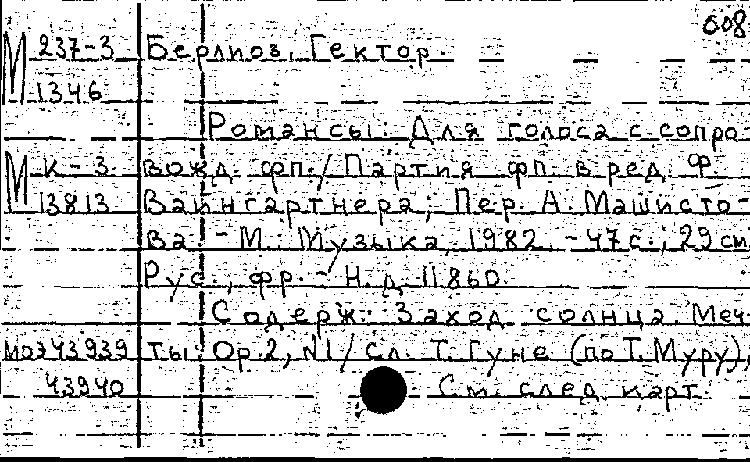 608
М 237-3 Берлиоз, Гектор.
1346
Романсы: Для голоса с сопро
М К-3 вожд. фп. / Партия фп. в ред. Ф.
13813 Вайнгартнера; Пер. А. Машисто-
ва. - М.: Музыка, 1982. - 47 с.; 29 см
Рус., фр. - Н. д. 11860.
Содерж.: Заход солнца. Меч
МОЗ43939 ты: Ор. 2, N1 / Сл. Т. Гуне (по Т. Муру),
43940 См. след. карт.